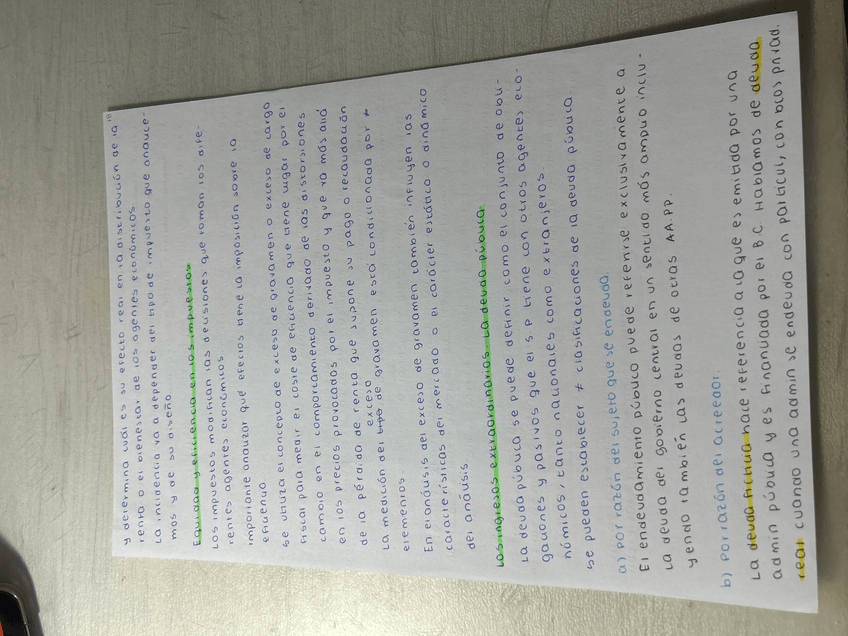 y determina cuál es su efecto real en la distribución de la
renta o el bienestar de los agentes económicos
La incidencia va a depender del tipo de impuesto que analice-
mos y de su diseño
Equidad y eficiencia en los impuestos
Los impuestos modifican las decisiones que toman los dife-
rentes agentes económicos
importante analizar qué efectos tiene la imposición sobre la
eficiencia
Se utiliza el concepto de exceso de gravamen o exceso de carga
fiscal para medir el coste de eficiencia que tiene lugar por el
cambio en el comportamiento derivado de las distorsiones
en los precios provocados por el impuesto y que va más allá
de la pérdida de renta que supone su pago o recaudación
exceso
La medición del tipo de gravamen está condicionada por ≠
elementos
En el análisis del exceso de gravamen también influyen las
características del mercado o el carácter estático o dinámico
del análisis
Los ingresos extraordinarios. La deuda pública.
La deuda pública se puede definir como el conjunto de obli-
gaciones y pasivos que el S.P tiene con otros agentes eco-
nómicos, tanto nacionales como extranjeros.
Se pueden establecer ≠ clasificaciones de la deuda pública.
a) Por razón del sujeto que se endeuda.
El endeudamiento público puede referirse exclusivamente a
la deuda del gobierno central en un sentido más amplio inclu-
yendo también las deudas de otras AA.PP.
b) Por razón del acreedor.
La deuda ficticia hace referencia a la que es emitida por una
admin pública y es financiada por el B.C. Hablamos de deuda
real cuando una admin se endeuda con particul, con bcos privad.